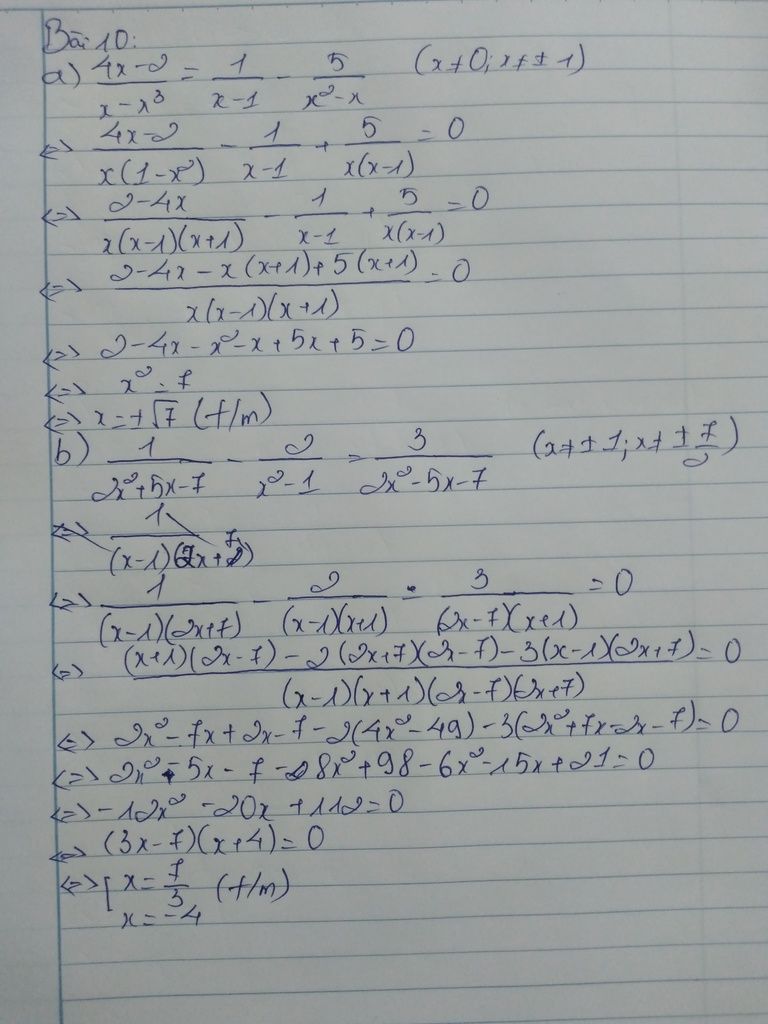 Bài 10:
a) \frac{4x-2}{x-x^3} = \frac{1}{x-1} - \frac{5}{x^2-x} (x≠0; x≠±1)
<=> \frac{4x-2}{x(1-x^2)} - \frac{1}{x-1} + \frac{5}{x(x-1)} = 0
<=> \frac{2-4x}{x(x-1)(x+1)} - \frac{1}{x-1} + \frac{5}{x(x-1)} = 0
<=> \frac{2-4x-x(x+1)+5(x+1)}{x(x-1)(x+1)} = 0
<=> 2-4x-x^2-x+5x+5=0
<=> x^2=7
<=> x=±√7 (t/m)
b) \frac{1}{2x^2+5x-7} - \frac{2}{x^2-1} = \frac{3}{2x^2-5x-7} (x≠±1; x≠±\frac{7}{2})
<=> \frac{1}{(x-1)(2x+7)}
<=> \frac{1}{(x-1)(2x+7)} - \frac{2}{(x-1)(x+1)} - \frac{3}{(2x-7)(x+1)} = 0
<=> \frac{(x+1)(2x-7)-2(2x+7)(2x-7)-3(x-1)(2x+7)}{(x-1)(x+1)(2x-7)(2x+7)} = 0
<=> 2x^2-7x+2x-7-2(4x^2-49)-3(2x^2+7x-2x-7)=0
<=> 2x^2-5x-7-8x^2+98-6x^2-15x+21=0
<=> -12x^2-20x+112=0
<=> (3x-7)(x+4)=0
<=> [ x=\frac{7}{3} (t/m)
x=-4